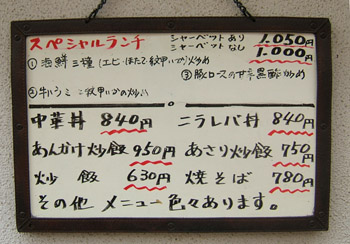 スペシャルランチ シャーベットあり 1,050円
シャーベットなし 1,000円
① 海鮮三種(エビ・ほたて・紋甲いか)炒め
③ 豚ロースの甘辛黒酢炒め
② 牛バラミ
中華丼 840円 ニラレバ丼 840円
あんかけ炒飯 950円 あさり炒飯 750円
炒飯 630円 焼そば 780円
その他 メニュー色々あります。